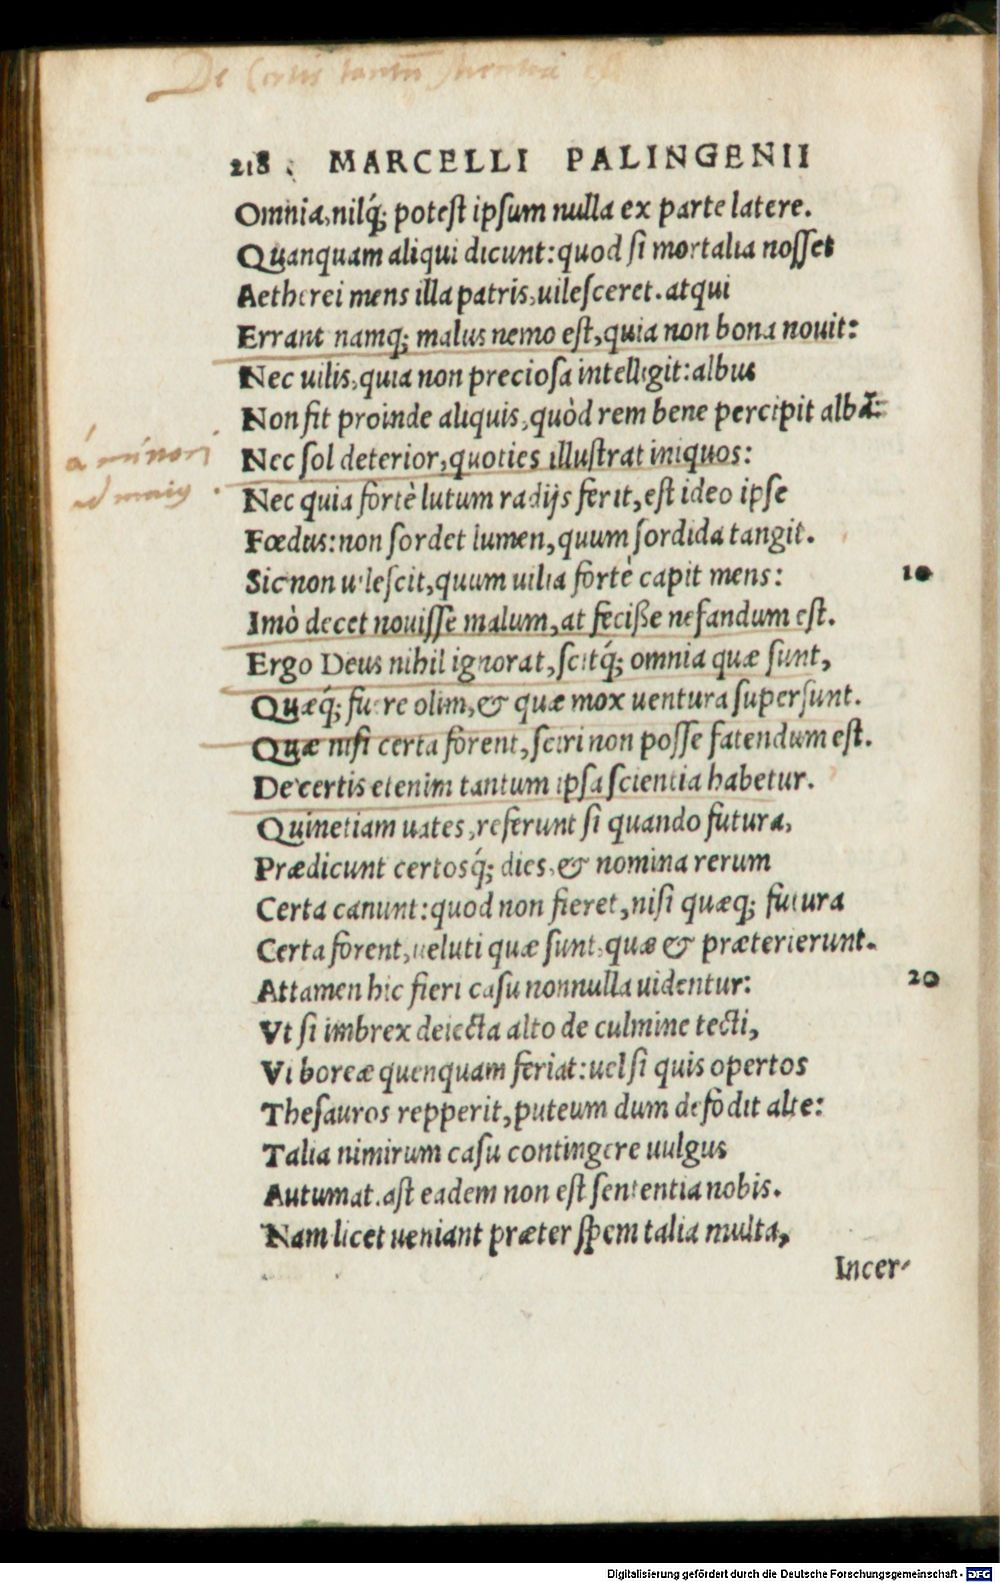 De Certis tantum scientia est
218 . MARCELLI PALINGENII
Omnia, nilq́; potest ipsum nulla ex parte latere.
Quanquam aliqui dicunt: quod si mortalia nosset
Aetherei mens illa patris, uilesceret. atqui
Errant namq; malus nemo est, quia non bona nouit:
Nec uilis, quia non preciosa intelligit: albus
Non fit proinde aliquis, quòd rem bene percipit albā:
á minori
ad maius .
Nec sol deterior, quoties illustrat iniquos:
Nec quia fortè lutum radijs ferit, est ideo ipse
Fœdus: non sordet lumen, quum sordida tangit.
Sic non uilescit, quum uilia fortè capit mens: 10
Imò decet nouisse malum, at fecisse nefandum est.
Ergo Deus nihil ignorat, scitq́; omnia quæ sunt,
Quæq́; fuere olim, & quæ mox uentura supersunt.
Quæ nisi certa forent, sciri non posse fatendum est.
De certis etenim tantum ipsa scientia habetur.
Quinetiam uates, referunt si quando futura,
Prædicunt certosq́; dies, & nomina rerum
Certa canunt: quod non fieret, nisi quæq; futura
Certa forent, ueluti quæ sunt, quæ & præterierunt.
Attamen hic fieri casu nonnulla uidentur: 20
Vt si imbrex deiecta alto de culmine tecti,
Vi boreæ quenquam feriat: uel si quis opertos
Thesauros repperit, puteum dum defodit alte:
Talia nimirum casu contingere uulgus
Autumat. ast eadem non est sententia nobis.
Nam licet ueniant præter spem talia multa,
Incer-
Digitalisierung gefördert durch die Deutsche Forschungsgemeinschaft - DFG